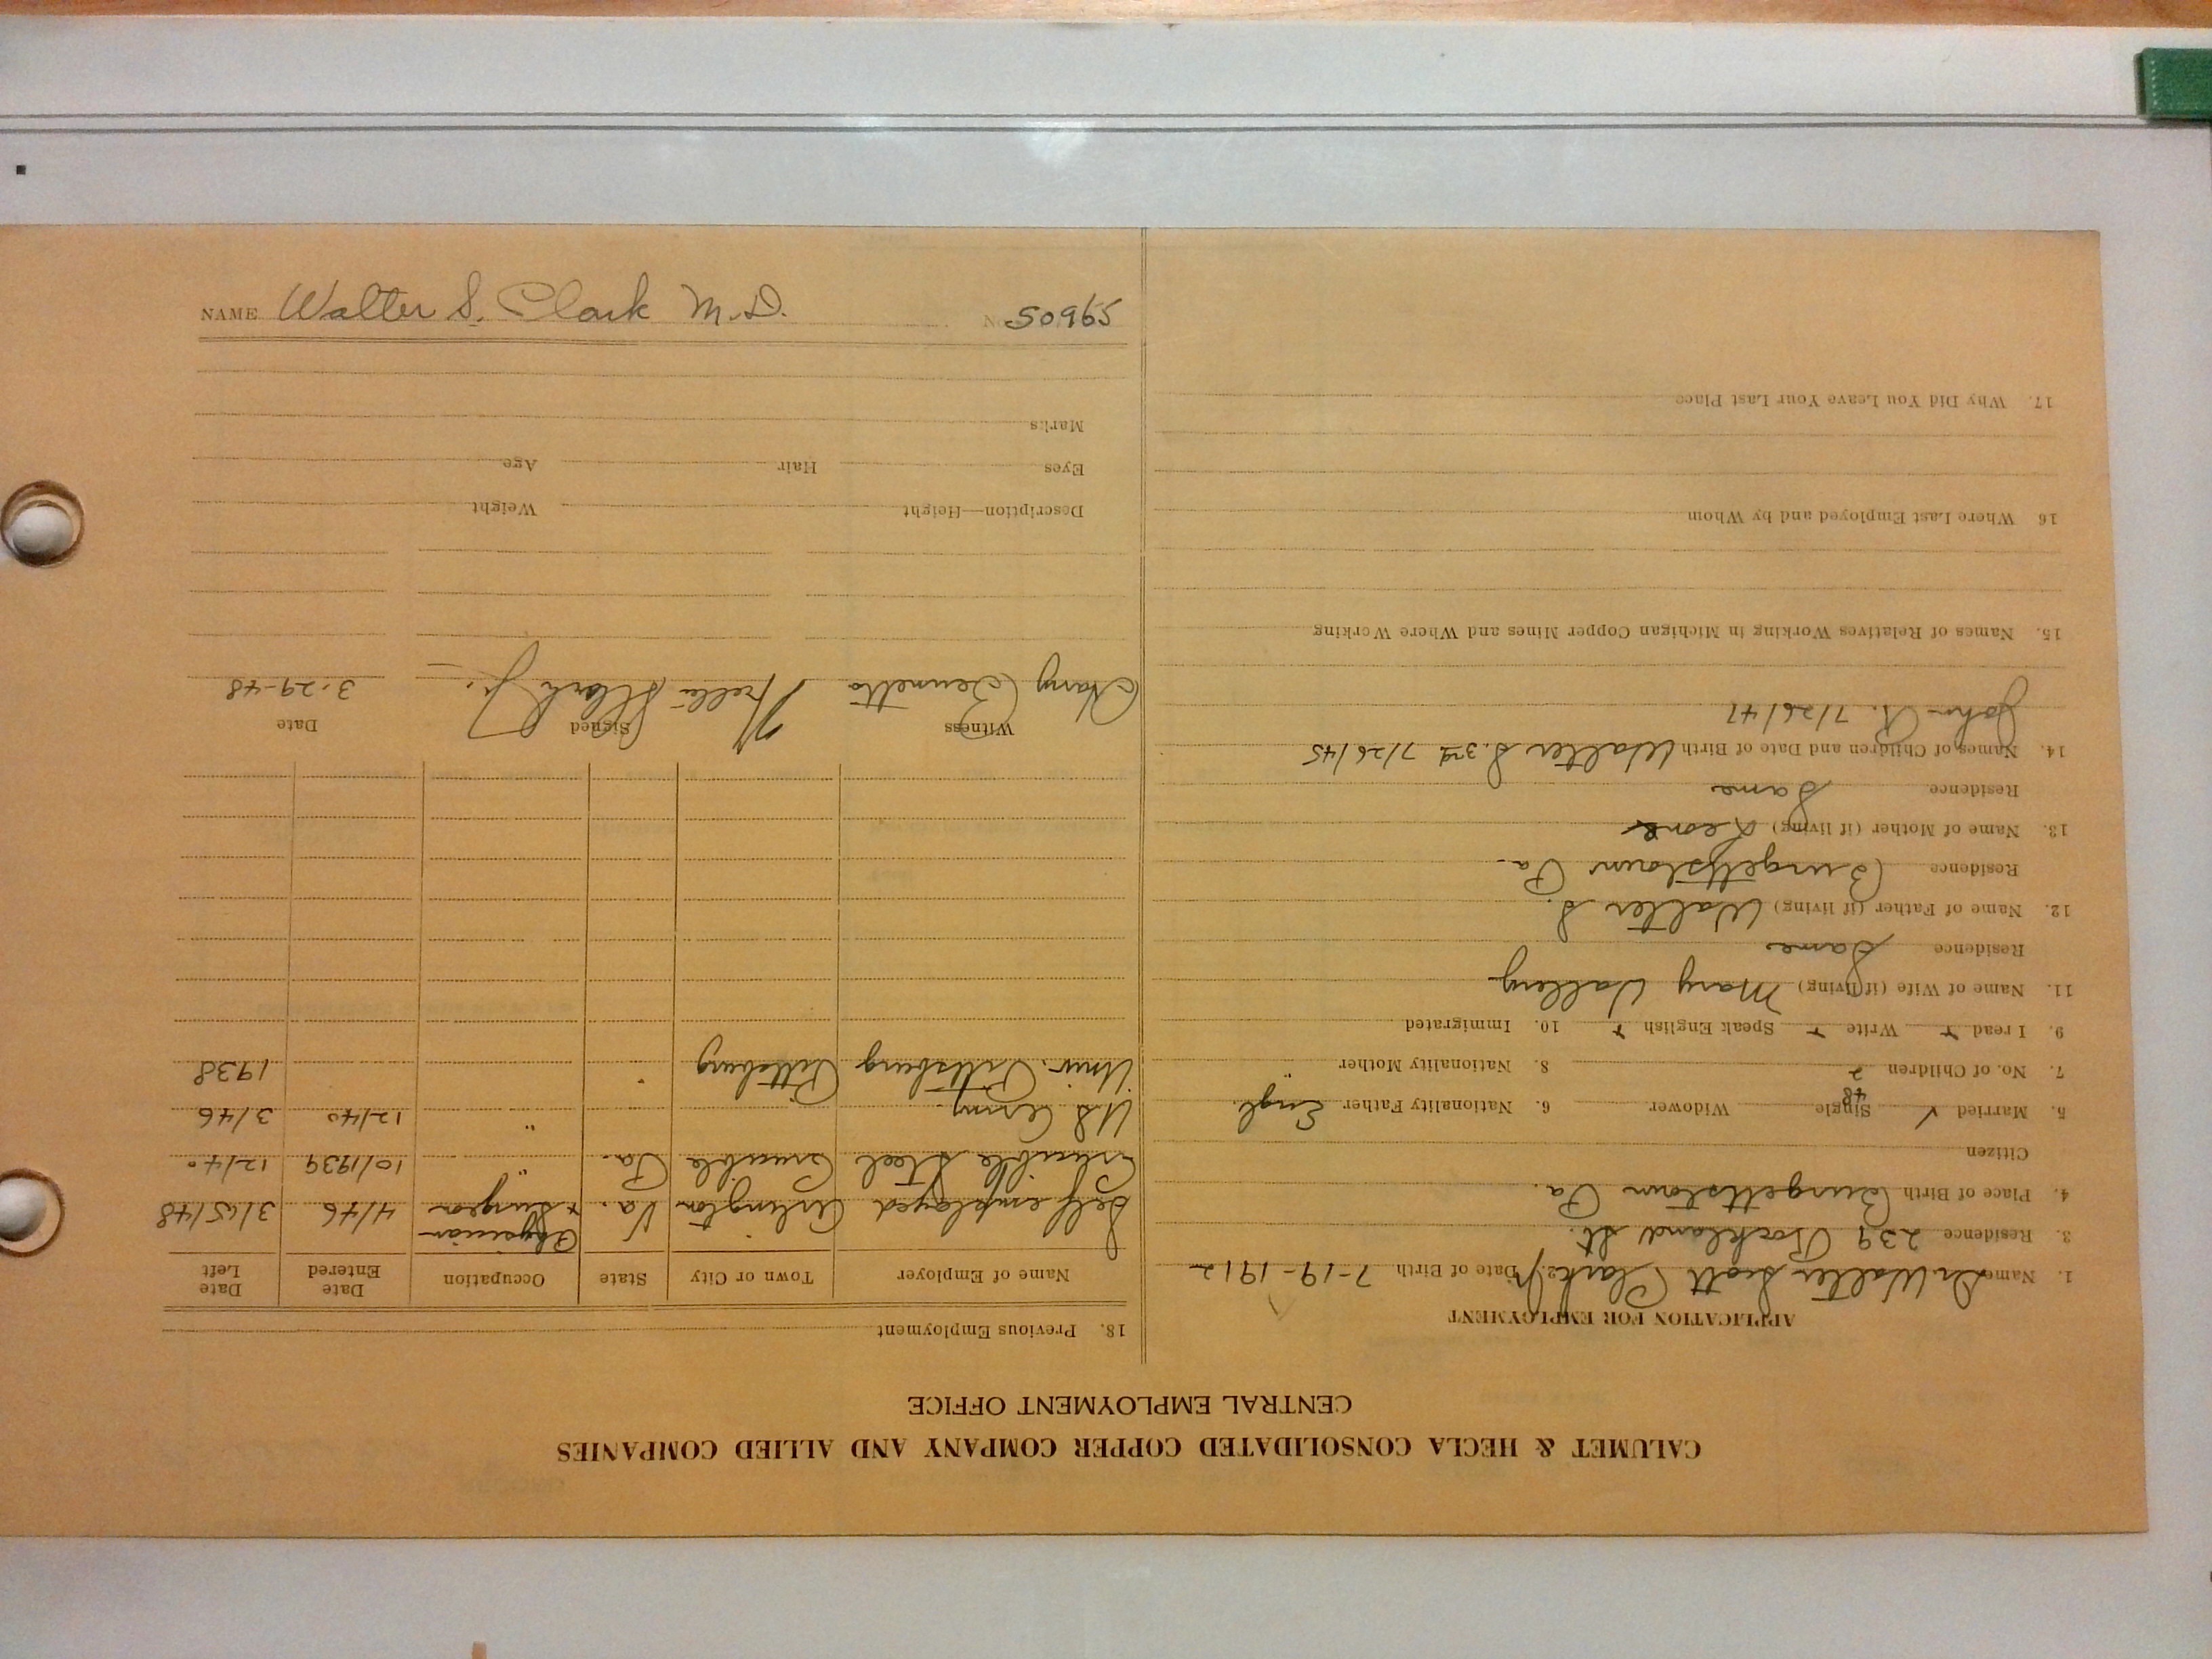 NAME Walter S. Clark M.D. No. 50965
CALUMET & HECLA CONSOLIDATED COPPER COMPANY AND ALLIED COMPANIES
CENTRAL EMPLOYMENT OFFICE
APPLICATION FOR EMPLOYMENT
1. Name Dr. Walter Scott Clark Jr. 2. Date of Birth 7-19-1912
3. Residence 239 Rockland St.
4. Place of Birth Burgettstown Pa.
Citizen
5. Married ✓ Single Widower 6. Nationality Father Engl.
7. No. of Children 2 8. Nationality Mother "
9. I read Write Speak English 10. Immigrated
11. Name of Wife (if living) Mary Valleng
Residence Same
12. Name of Father (if living) Walter S.
Residence Burgettstown Pa.
13. Name of Mother (if living) Leona
Residence Same
14. Names of Children and Date of Birth Walter S. 3rd 7/26/45
John R. 7/26/47
15. Names of Relatives Working in Michigan Copper Mines and Where Working
16 Where Last Employed and by Whom
17. Why Did You Leave Your Last Place
18. Previous Employment
Name of Employer Town or City State Occupation Date Entered Date Left
Self employed Arlington Va. Physician + Surgeon 4/46 3/15/48
Crucible Steel Crucible Pa. " 10/1939 12/40
U.S. Army " 12/40 3/46
Univ. Pittsburg Pittsburg 1938
Witness Signed Date
Harry Bennetts Walter S Clark Jr. 3-29-48
Description—Height Weight
Eyes Hair Age
Marks